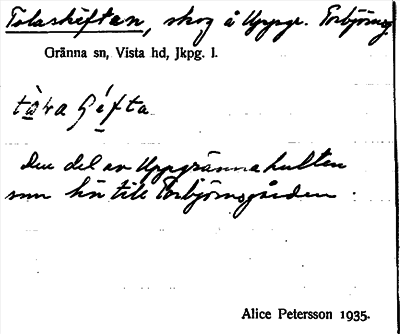 Tolaskiftan, skog å Uppgr. Torbjörnsg.
Gränna sn, Vista hd, Jkpg. l.
Den del av Uppgrännahulten
som hör till Torbjörnsgården.
Alice Petersson 1935.